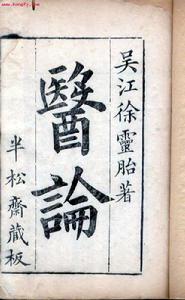 吳江徐靈胎著
醫論
半松齋藏板